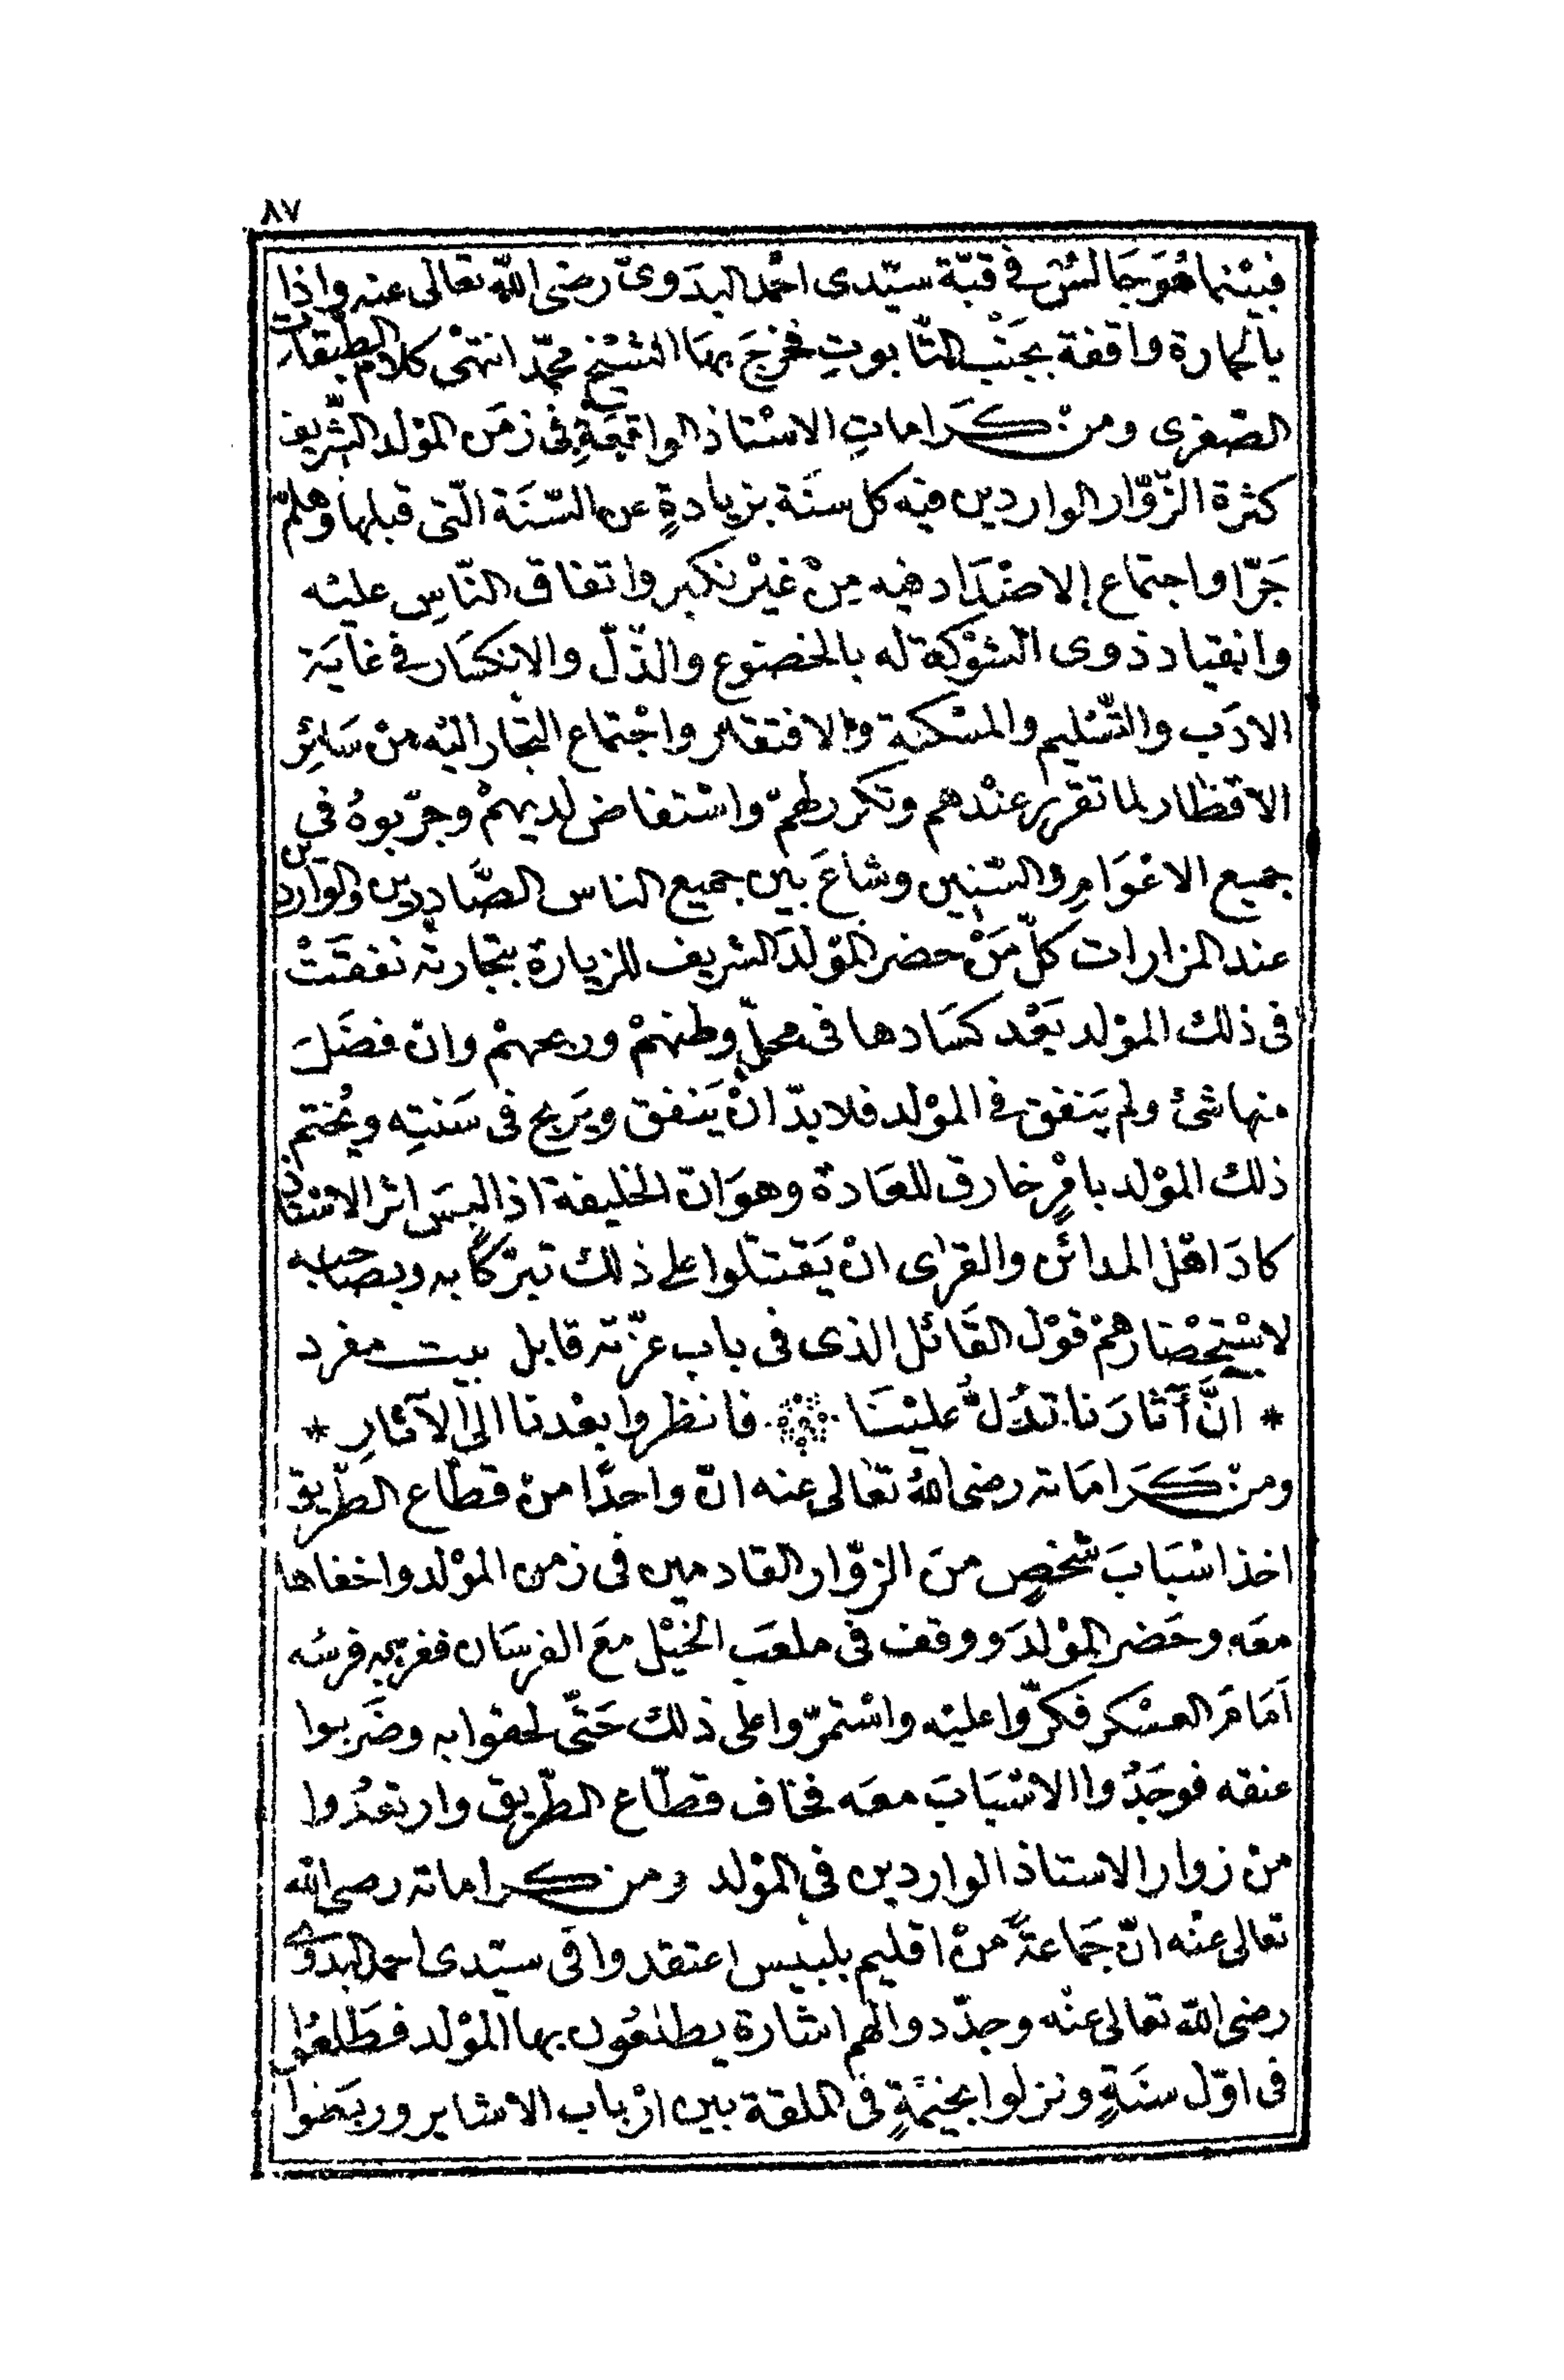 ٨٧
فبيْنما هُوَ جَالسٌ في قبّة سيّدى احْمد البدَوىّ رضى اللّه تعالى عنه واذا
بالحمارة واقفة بجَنْب التّابوتِ فخرجَ بهَا الشيْخ محمّد انتهٰى كلام الطّبقات
الصّغرى ومنْ كَرَاماتِ الاسْتاذ الواقعَةِ فى زمَن المَوْلد الشّريف
كثرة الزّوّار الواردين فيه كل سنَة بزيادةٍ عن السّنَة الّتى قبلها وهلمّ
جَرّا واجتماع الاضْدَاد فيه مِنْ غيْر نكير واتفاق النّاسِ عليْه
وانقياد ذوى الشوْكة له بالخضوع والذّلّ والانكسَار في غايَة
الادَب والتّسْليم والمسْكنة والافتقار واجْتماع التجار اليْه منْ سَائِرِ
الاقطار لما تقرّر عنْدهم وتكرر لهمْ واسْتفاض لديهمْ وجرّبوهُ فى
جميع الاعْوَامِ والسّنِين وشاعَ بين جميع الناس الصَّادِرين والواردين
عند المزارات كلّ مَنْ حضر المَوْلدَ الشريف للزيارة بتجارته نفقَتْ
فى ذلك المَوْلد بَعْد كسَادها فى محلّ وطنهمْ وربحهمْ وانْ فضَلَ
منها شئ ولم يَنفق في المَوْلد فلا بدّ انْ يَنفق ويَربح فى سَنتِه ويُختم
ذلك المَوْلد بامْرٍ خارق للعَادة وهوَ انّ الخليفة اذا لبسَ اثر الاسْتاذ
كادَ اهْل المدائن والقرٰى انْ يَقتتلوا على ذلك تبرّكًا به وبصَاحبه
لاسْتِحْضارهمْ قوْل القَائل الذى فى باب عزّته قابل بيت مفرد
* انَّ آثارَنا تدُلُّ عليْنَا فانظروا بعْدنا الى الآثارِ *
ومنْ كَرَامَاته رضى اللّهُ تعَالى عنه انّ واحدًا منْ قطّاع الطّريق
اخذ اسْبَابَ شخصٍ منَ الزوّار القادمين فى زمن المَوْلد واخفاها
معَه وحَضر المَوْلدَ ووقف فى ملعَب الخيْل معَ الفرسَان ففر به فرسُه
اَمَامَ العسْكر فكرّوا عليْه واسْتمرّوا على ذلك حَتّى لحقوا به وضَربوا
عنقه فوجَدُوا الاسْبَابَ معَه فخاف قطّاع الطّريق وارتعدُوا
منْ زوار الاستاذ الواردين فى المَوْلد ومن كراماته رضى اللّه
تعالى عنْه انّ جَماعَةً منْ اقليم بلبيس اعتقدوا فى سيّدى احمد البدَوى
رضى اللّه تعالى عنْه وجدّدوا لهم اشارة يطلعُون بها المَوْلد فطَلعُوا
فى اوّل سنَةٍ ونزلوا بخيْمَةٍ فى الملقة بين ارْباب الاشاير وربَضوا